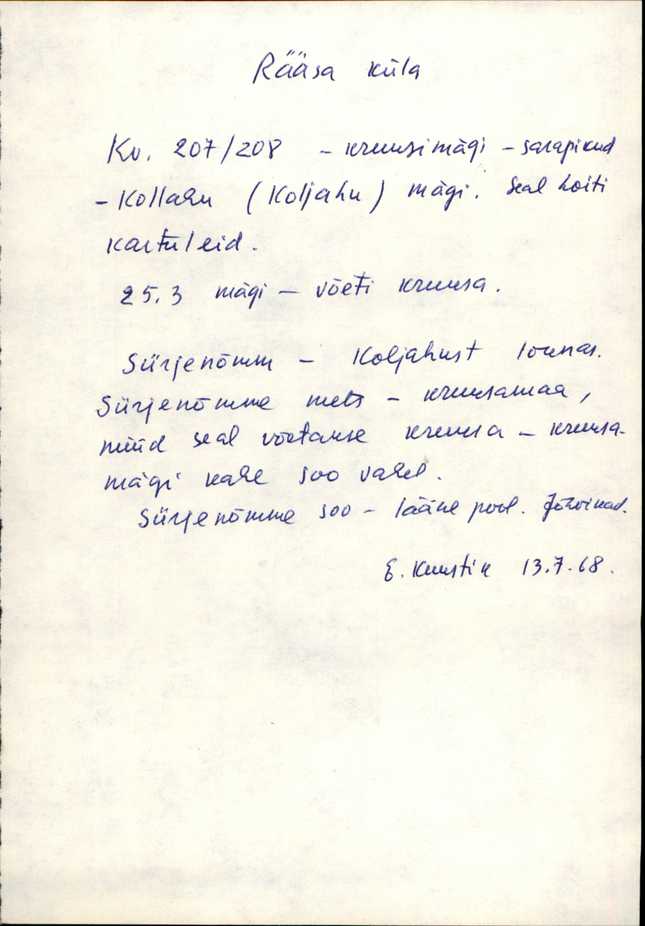 Rääsa küla
Kv. 207/208 - kruusimägi - sarapikud
- Kollahu (Koljahu) mägi. Seal hoiti
kartuleid.
25.3 mägi - võeti kruusa.
Sürjenõmm - Koljahust lõunas.
Sürjenõmme mets - kruusamaa,
nüüd seal võetakse kruusa - kruusa-
mägi kahe soo vahel.
Sürjenõmme soo - lääne pool. Jõhvikad.
E. Kuustik 13.7.68.